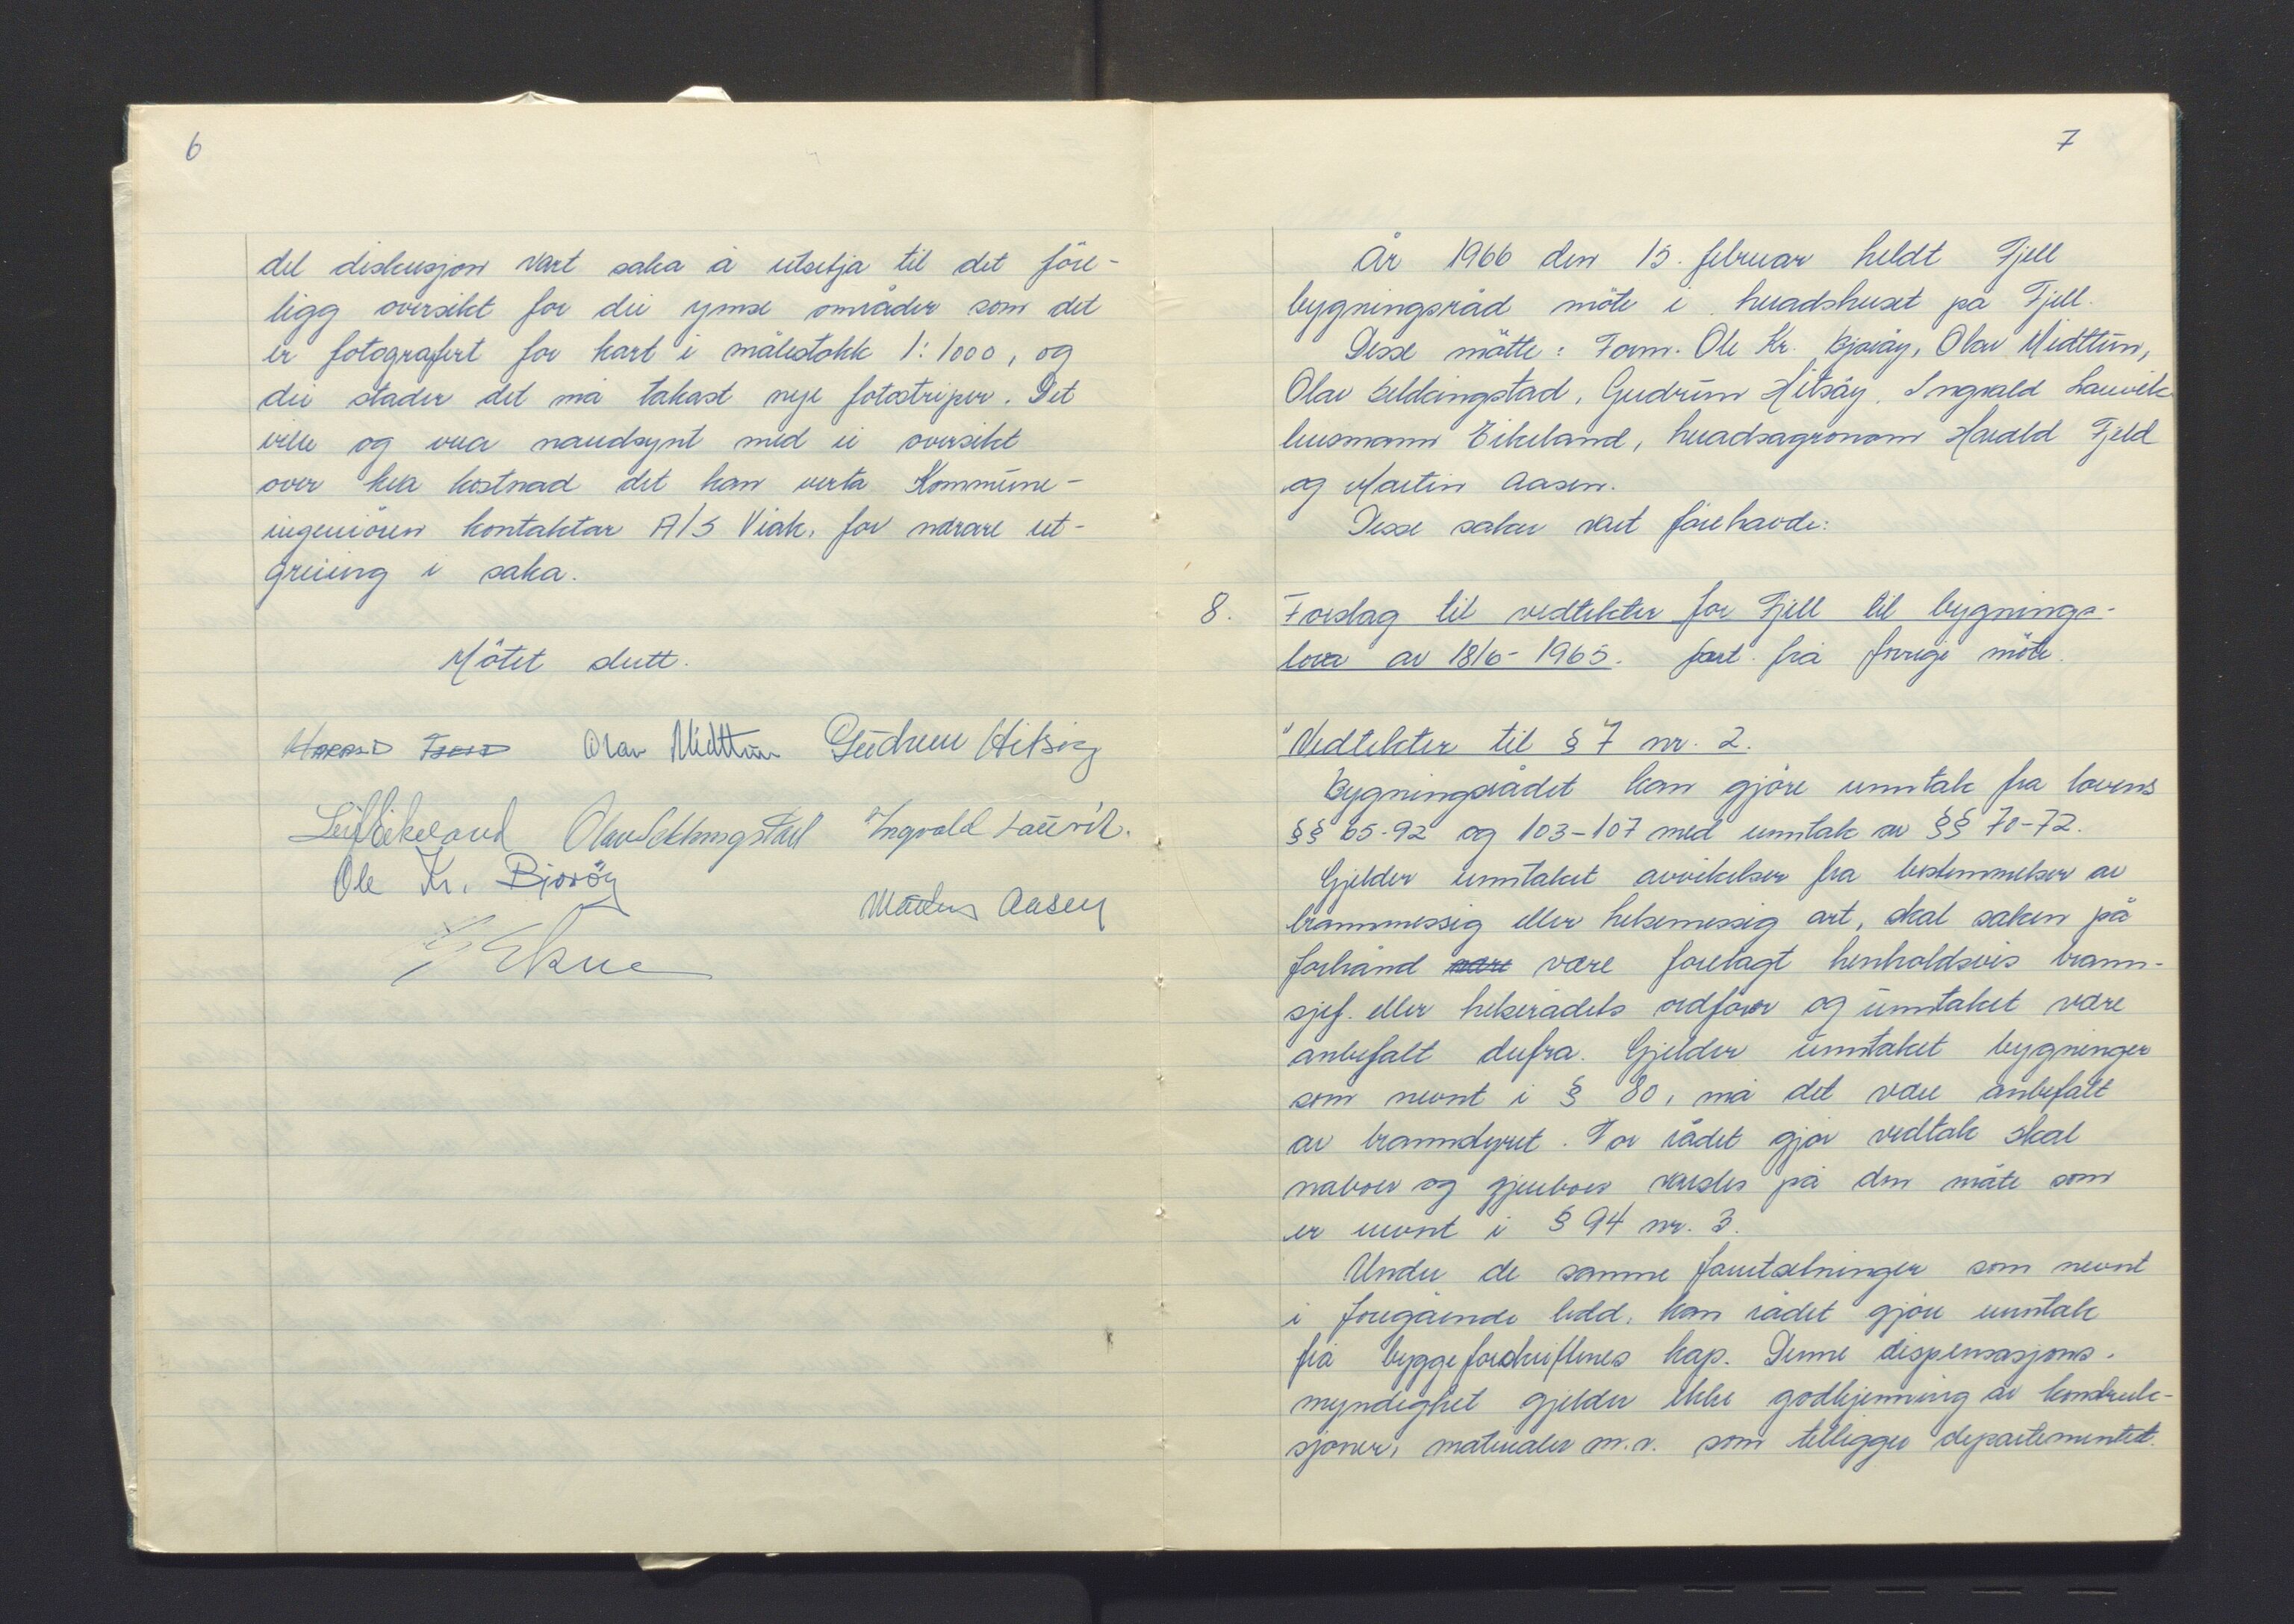 6
del diskusjon vart saka å utsetja til det före-
ligg oversikt for dei ymse områder som det
er fotografert for kart i målestokk 1:1000, og
dei stader det må takast nye fotostriper. Det
ville og vera naudsynt med ei oversikt
over kva kostnad det kan verta Kommune-
ingeniören kontaktar A/S Viak, for nærare ut-
greiing i saka.
Mötet slutt.
Harald Fjeld Olav Midttun Gudrun Hitsöy
Leif Eikeland Olav Sekkingstad Ingvald Lauvik.
Ole Kr. Bjoröy
Martin Aasen
Ekne
7
År 1966 den 15. februar heldt Fjell
bygningsråd möte i heradshuset på Fjell.
Desse mötte: Form. Ole Kr. Bjoröy, Olav Midttun,
Olav Sekkingstad, Gudrun Hitsöy, Ingvald Lauvik
lensmann Eikeland, heradsagronom Harald Fjeld
og Martin Aasen.
Desse saker vart förehavde:
8. Forslag til vedtekter for Fjell til bygnings-
lova av 18/6-1965. fort. frå forrige möte.
"Vedtekter til § 7 nr. 2.
Bygningsrådet kan gjöre unntak fra lovens
§§ 65-92 og 103-107 med unntak av §§ 70-72.
Gjelder unntaket avvikelser fra bestemmelser av
brannmessig eller helsemessig art, skal saken på
forhånd være forelagt henholdsvis brann-
sjef. eller helserådets ordförer og unntaket være
anbefalt derfra. Gjelder unntaket bygninger
som nevnt i § 80, må det være anbefalt
av brannstyret. För rådet gjör vedtak skal
naboer og gjenboer varsles på den måte som
er nevnt i § 94 nr. 3.
Under de samme forutsetninger som nevnt
i foregående ledd, kan rådet gjöre unntak
frå byggeforskriftenes kap. Denne dispensasjons-
myndighet gjelder ikke godkjenning av konstruk-
sjoner, materialer m.v. som tilligger departementet.